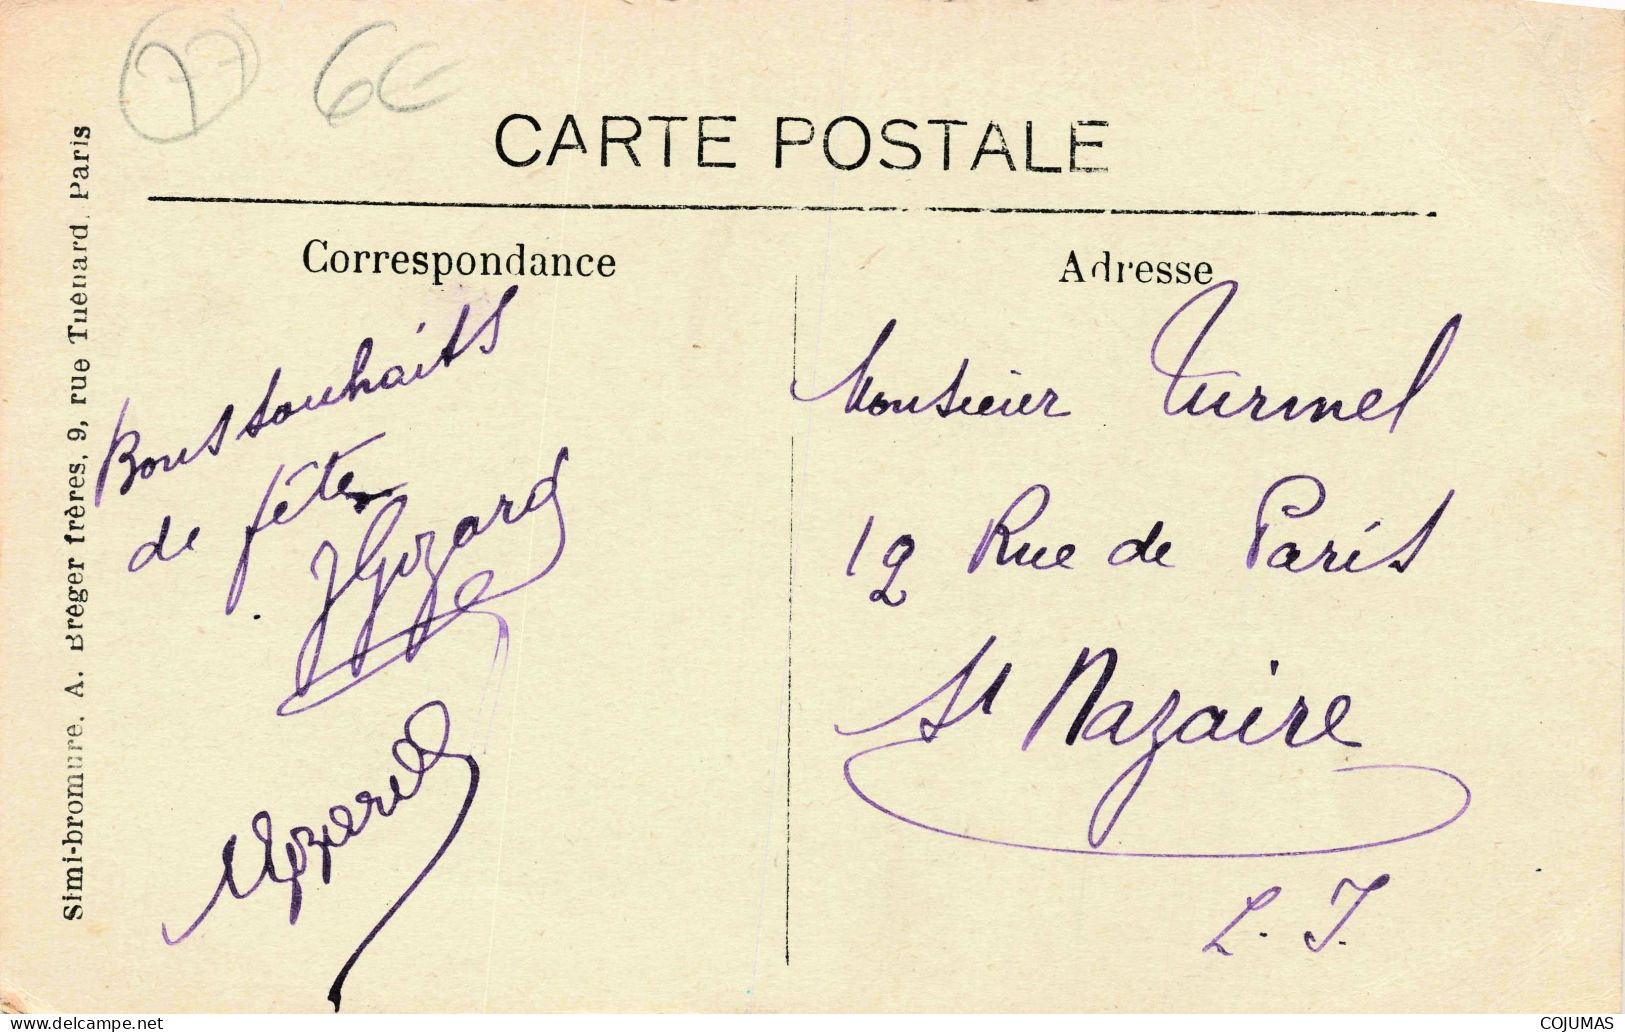 77 6€
CARTE POSTALE
Simi-bromure. A. Breger frères, 9, rue Thénard. Paris
Correspondance
Bons souhaits
de fête
JGozard
Adresse
Monsieur Turmel
12 Rue de Paris
St Nazaire
L. I.
www.delcampe.net
COJUMAS